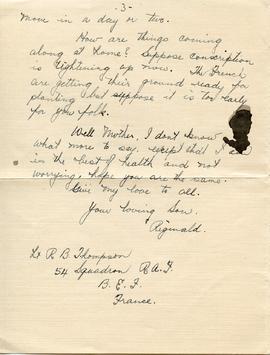 - 3 -
move in a day or two.
How are things coming
along at home? Suppose conscription
is tightening up more. The French
are getting their ground ready for
planting but suppose it is too early
for you folk.
Well Mother, I don't know
what more to say, except that I am
in the best of health and not
worrying, hope you are the same.
Give my love to all.
Your loving Son.
Reginald.
Lt R. B. Thompson
54 Squadron R.A.F.
B. E. F.
France.